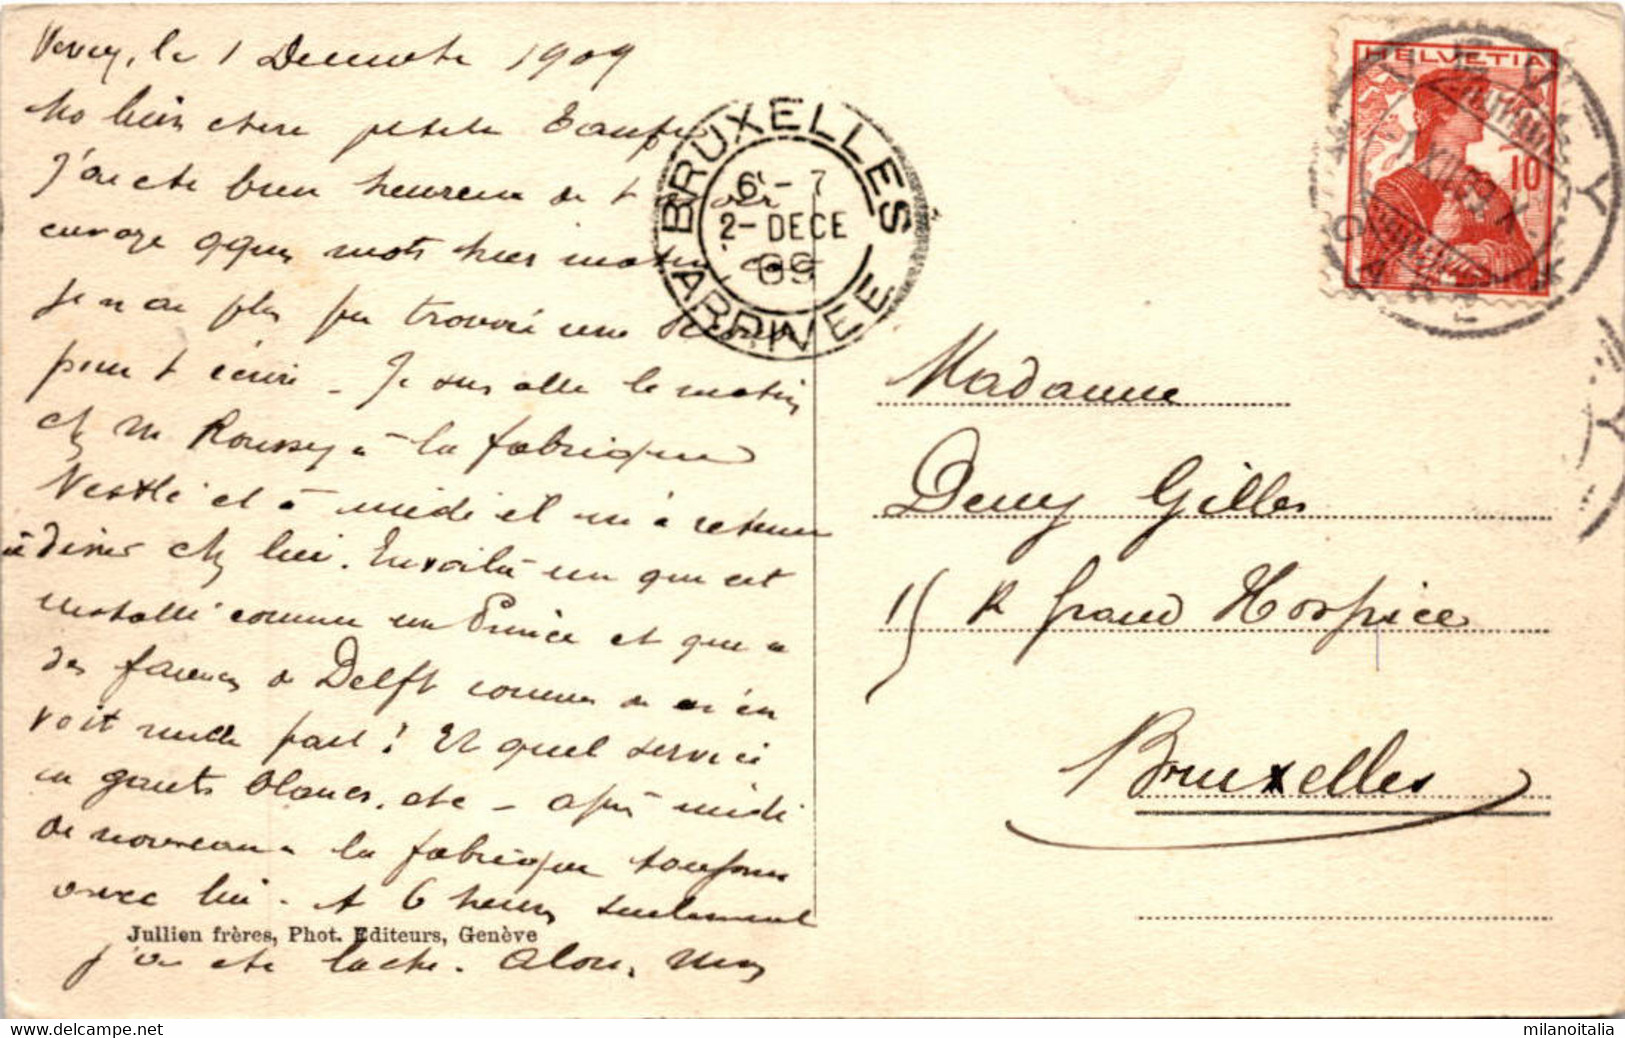 Vevey, le 1 Decembre 1909
Ma bien chere petite
J'ai ete bien heureux de t'avoir
envoyé qques mots hier matin, car
je n'ai plus pu trouvé une
pour t'écrire - Je suis allé le matin
chz M Roussy à la fabrique
Nestlé et à midi il m'a retenu
à diner chz lui. En voilà un qui est
installé comme un Prince et qui a
des faiences de Delft comme on n'en
voit nulle part! Et quel service
en gants blancs, etc - après midi
de nouveau à la fabrique toujours
avec lui. A 6 heures seulement
j'ai ete laché. Alors,
Jullien frères, Phot. Editeurs, Genève
BRUXELLES
6 - 7
2 - DECE
09
ARRIVEE
HELVETIA
10
VEVEY
1 XII 09
Madame
Deny Gilles
15 R grand Hospice
Bruxelles
milanoitalia